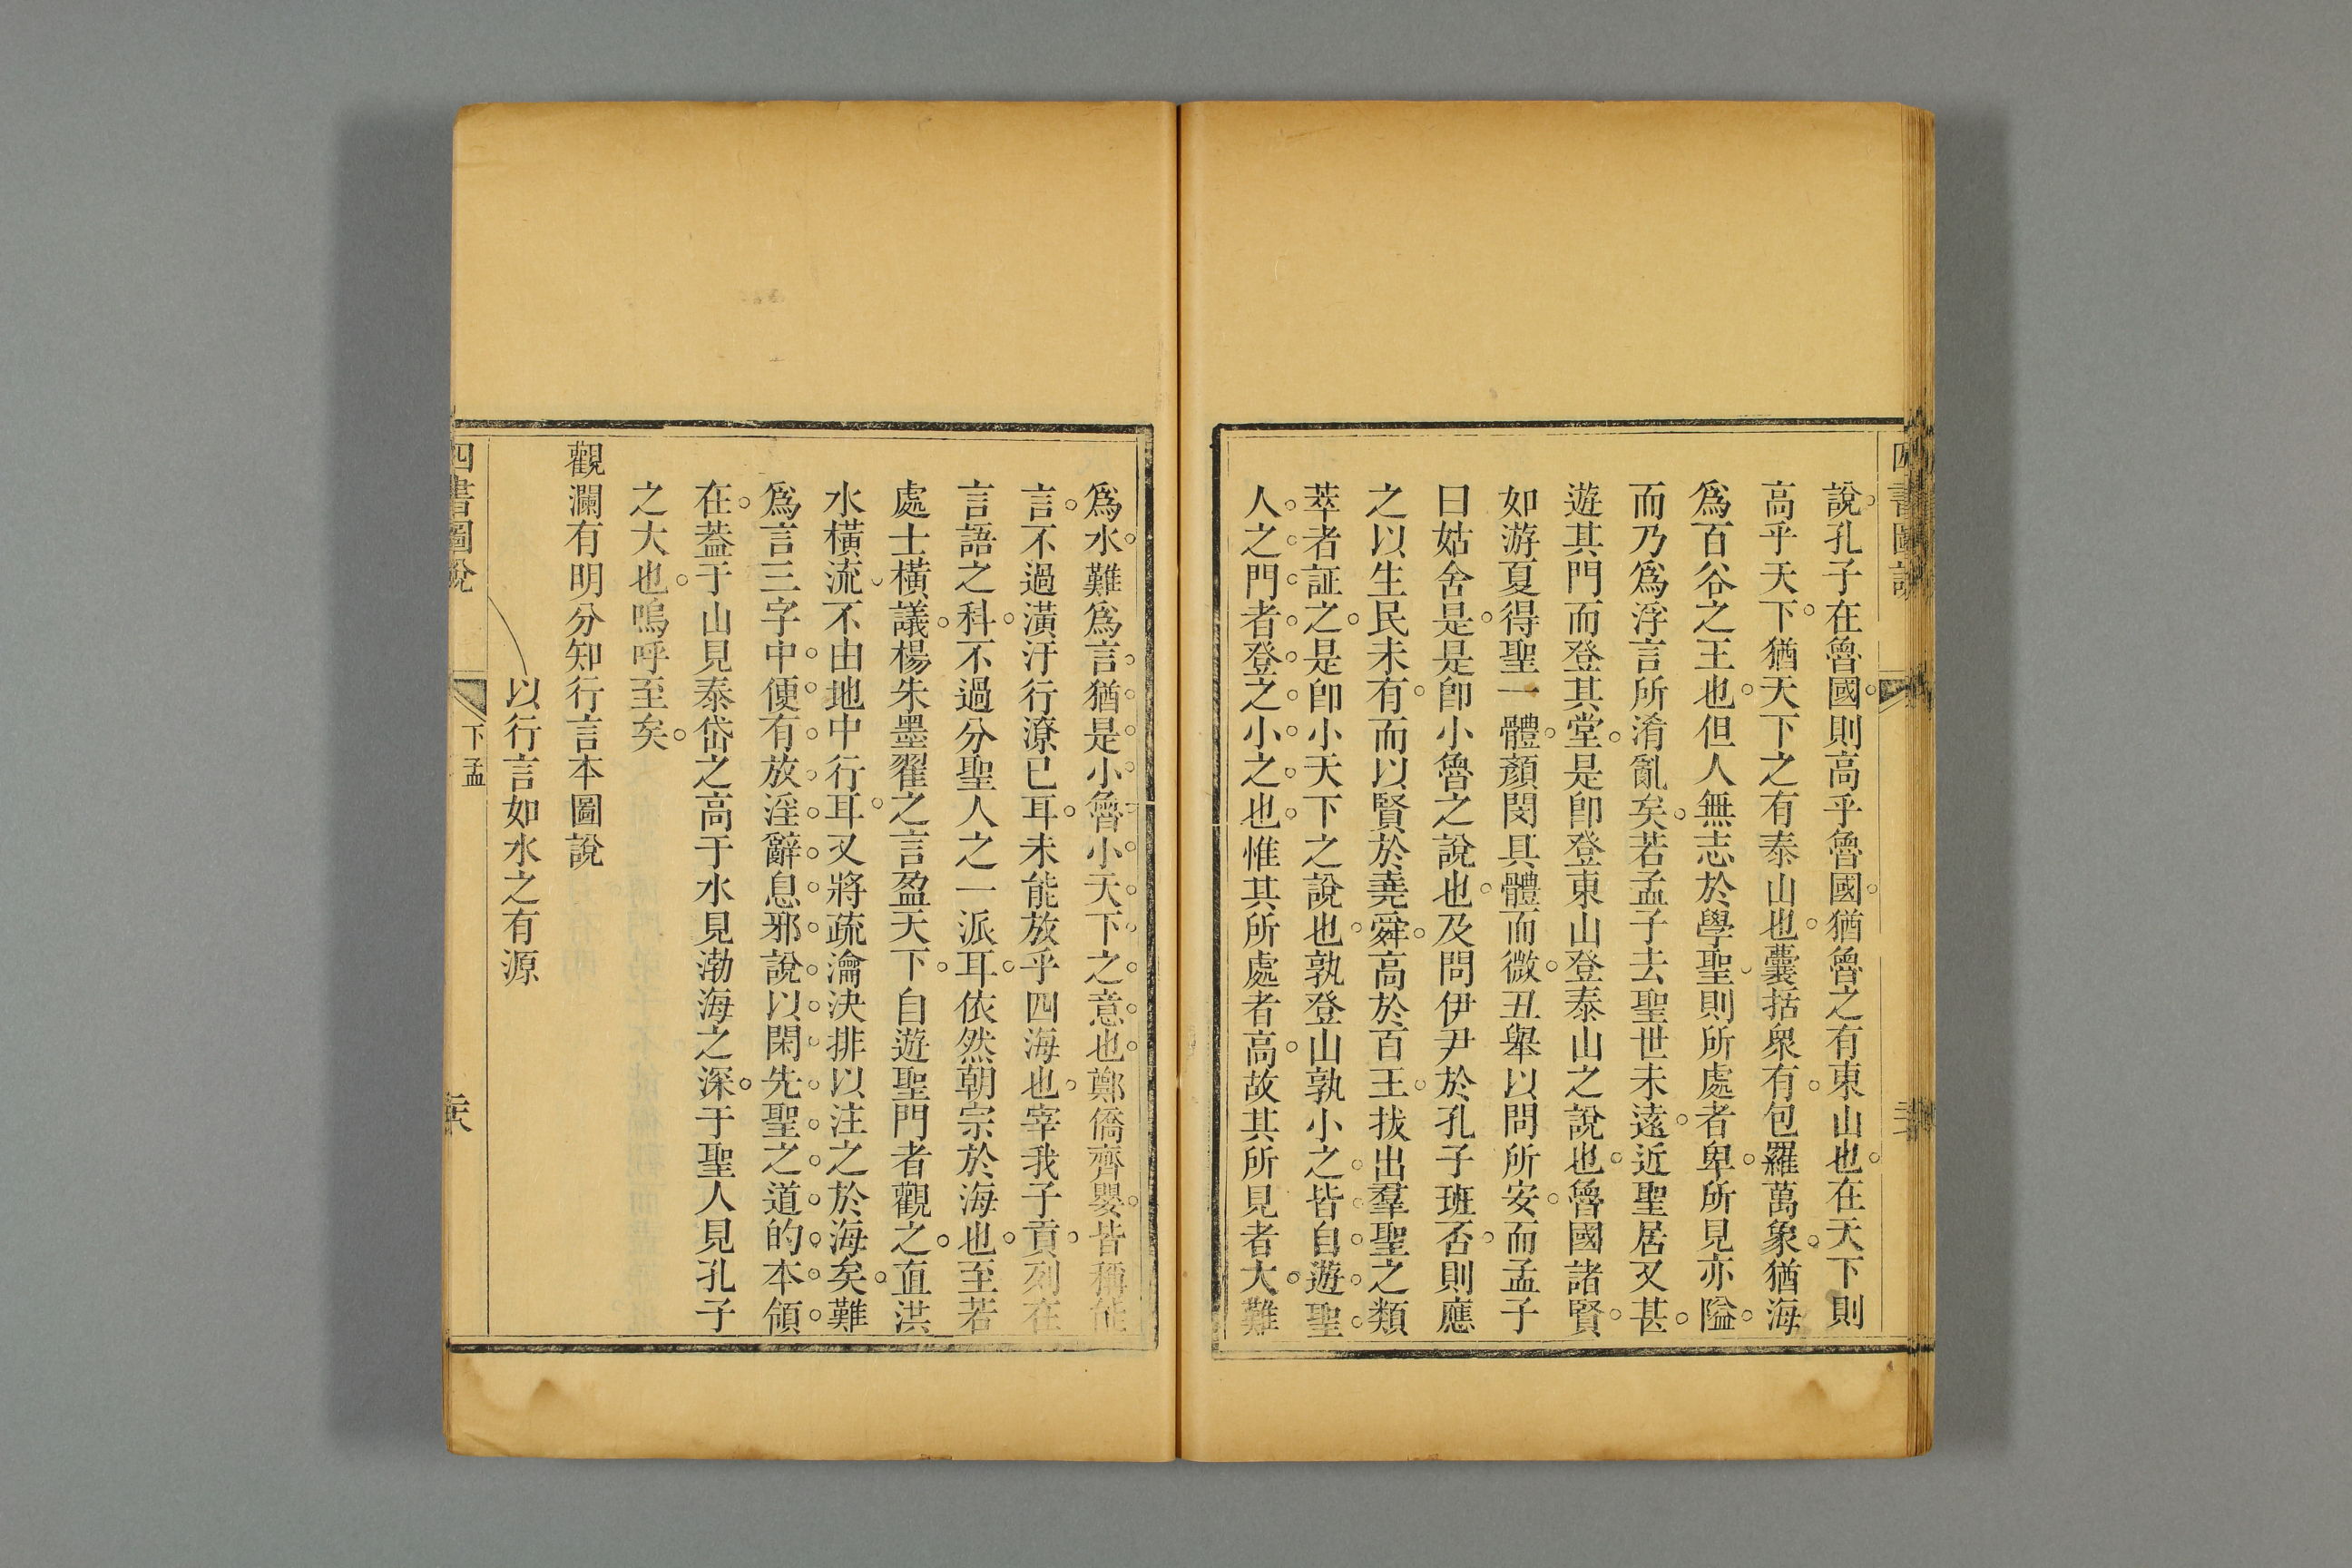 四書圖說
說孔子在魯國則高乎魯國猶魯之有東山也在天下則
高乎天下猶天下之有泰山也囊括衆有包羅萬象猶海
爲百谷之王也但人無志於學聖則所處者卑所見亦隘
而乃爲浮言所淆亂矣若孟子去聖世未遠近聖居又甚
遊其門而登其堂是卽登東山登泰山之說也魯國諸賢
如游夏得聖一體顏閔具體而微丑舉以問所安而孟子
曰姑舍是是卽小魯之說也及問伊尹於孔子班否則應
之以生民未有而以賢於堯舜高於百王拔出羣聖之類
萃者証之是卽小天下之說也孰登山孰小之皆自遊聖
人之門者登之小之也惟其所處者高故其所見者大難
爲水難爲言猶是小魯小天下之意也鄭僑齊嬰皆稱能
言不過潢汙行潦已耳未能放乎四海也宰我子貢列在
言語之科不過分聖人之一派耳依然朝宗於海也至若
處士橫議楊朱墨翟之言盈天下自遊聖門者觀之直洪
水橫流不由地中行耳又將疏瀹決排以注之於海矣難
爲言三字中便有放淫辭息邪說以閑先聖之道的本領
在葢于山見泰岱之高于水見渤海之深于聖人見孔子
之大也嗚呼至矣
觀瀾有明分知行言本圖說
以行言如水之有源
四書圖說
下孟